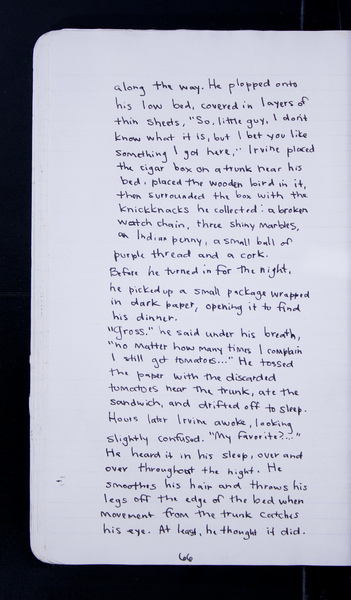 along the way. He plopped onto
his low bed, covered in layers of
thin sheets, "So, little guy, I don't
know what it is, but I bet you like
something I got here," Irvine placed
the cigar box on a trunk near his
bed. placed the wooden bird in it,
then surrounded the box with the
knickknacks he collected: a broken
watch chain, three shiny marbles,
an Indian penny, a small ball of
purple thread and a cork.
Before he turned in for the night,
he picked up a small package wrapped
in dark paper, opening it to find
his dinner.
"Gross." he said under his breath,
"no matter how many times I complain
I still get tomatoes..." He tossed
the paper with the discarded
tomatoes near the trunk, ate the
sandwich, and drifted off to sleep.
Hours later Irvine awoke, looking
slightly confused. "My favorite?..."
He heard it in his sleep, over and
over throughout the night. He
smoothes his hair and throws his
legs off the edge of the bed when
movement from the trunk catches
his eye. At least, he thought it did.
66